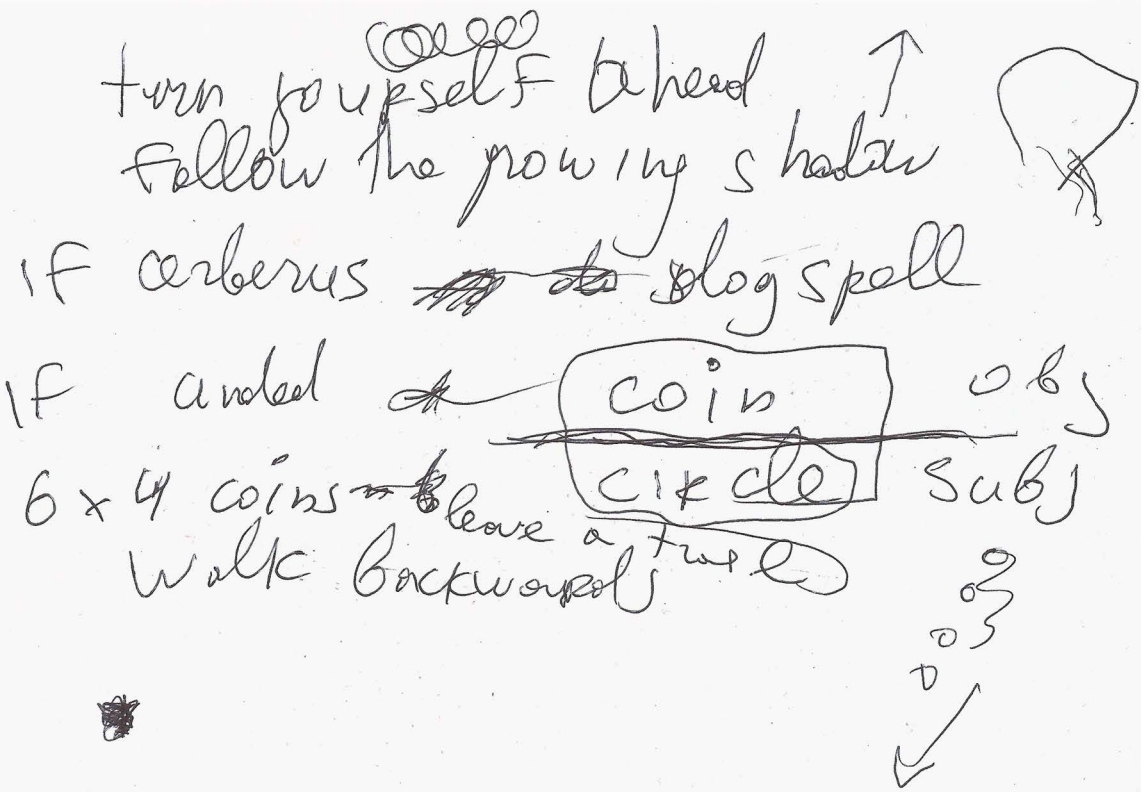 turn yourself ahead
follow the growing shadow
if cerberus dog spell
if ended coin obj
circle subj
6 x 4 coins leave a trael
walk backwards